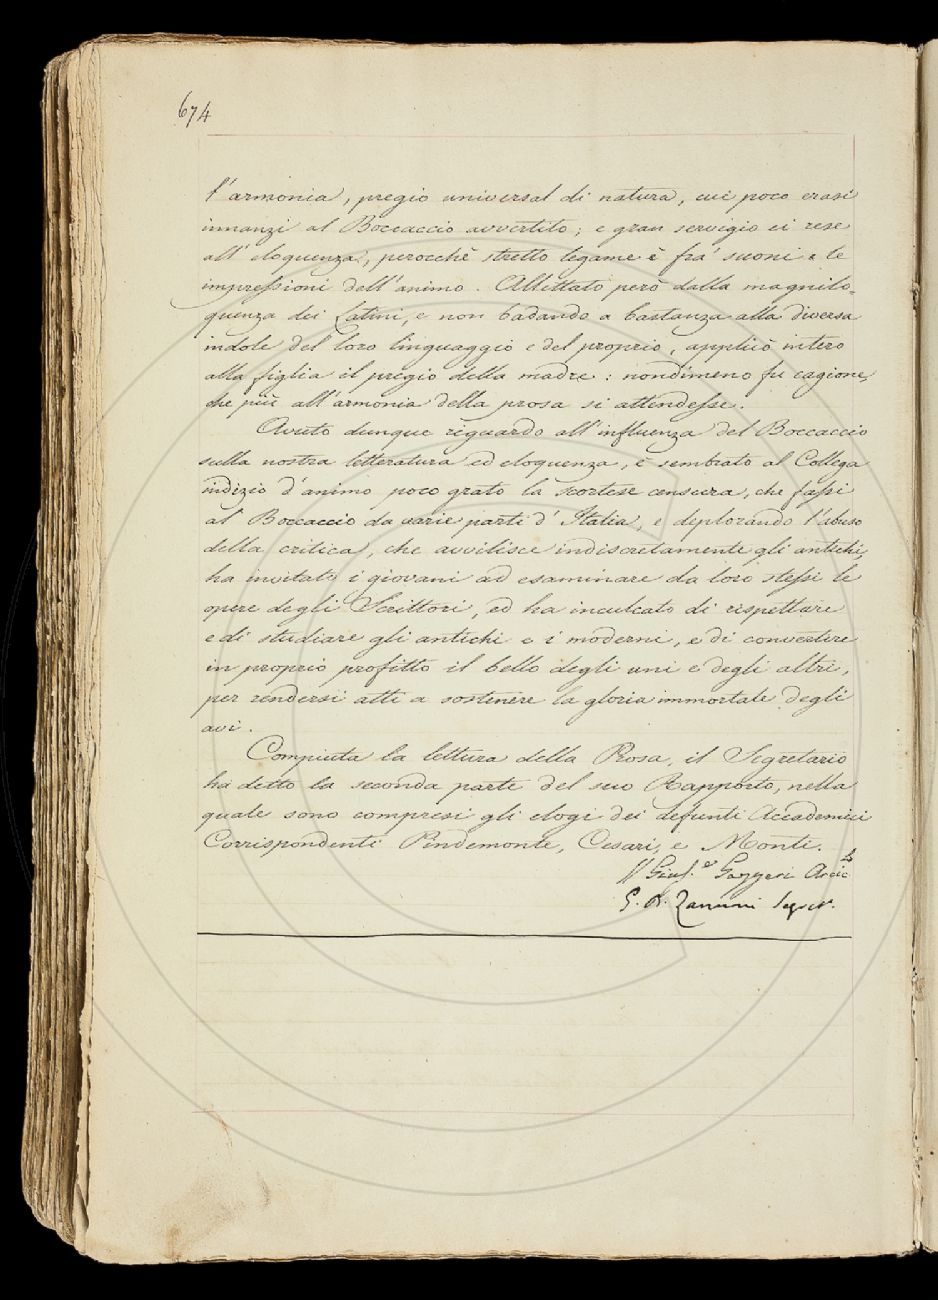 674
l'armonia, pregio universal di natura, cui poco erasi
innanzi al Boccaccio avvertito; e gran servigio ei rese
all'eloquenza, perocchè stretto legame è fra' suoni e le
impressioni dell'animo. Allettato però dalla magnilo=
quenza dei Latini, e non badando a bastanza alla diversa
indole del loro linguaggio e del proprio, applicò intero
alla figlia il pregio della madre: nondimeno fu cagione,
che più all'armonia della prosa si attendesse.
Avuto dunque riguardo all'influenza del Boccaccio
sulla nostra letteratura ed eloquenza, è sembrato al Collega
indizio d'animo poco grato la scortese censura, che fassi
al Boccaccio da varie parti d'Italia, e deplorando l'abuso
della critica, che avvilisce indiscretamente gli antichi,
ha invitato i giovani ad esaminare da loro stessi le
opere degli Scrittori, ed ha inculcato di rispettare
e di studiare gli antichi e i moderni, e di convertire
in proprio profitto il bello degli uni e degli altri,
per rendersi atti a sostenere la gloria immortale degli
avi.
Compiuta la lettura della Prosa, il Segretario
ha detto la seconda parte del suo Rapporto, nella
quale sono compresi gli elogi dei defunti Accademici
Corrispondenti Pindemonte, Cesari, e Monti.
Gius.e Gazzeri Arcic
G. B. Zannoni Segret.